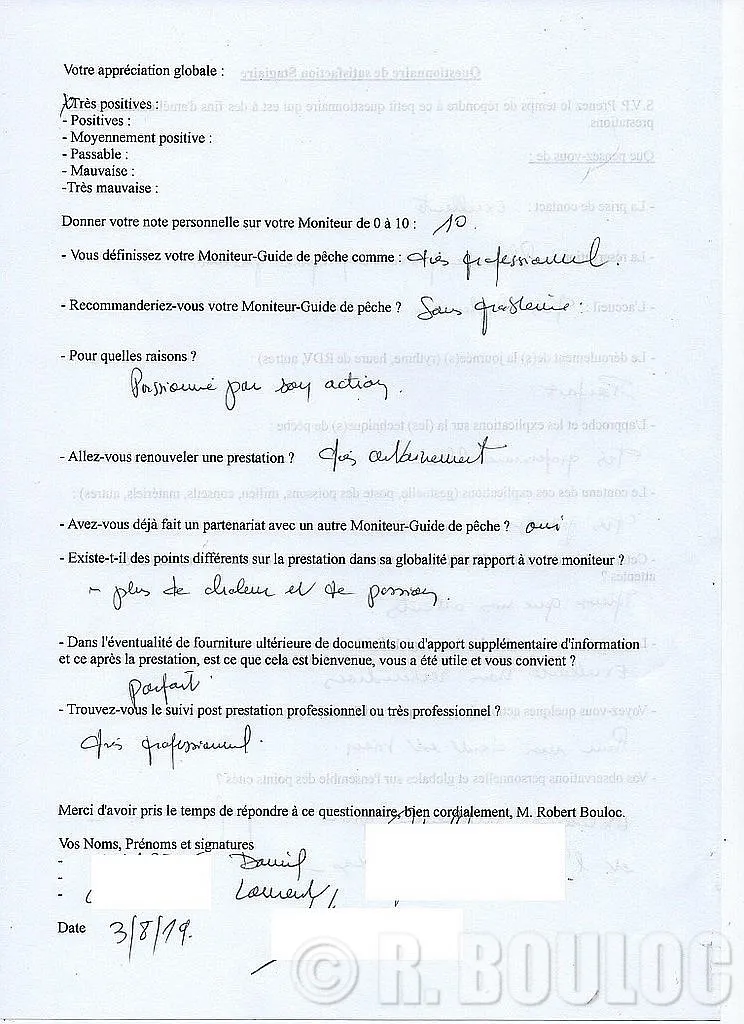 Votre appréciation globale :
XTrès positives :
- Positives :
- Moyennement positive :
- Passable :
- Mauvaise :
-Très mauvaise :
Donner votre note personnelle sur votre Moniteur de 0 à 10 : 10.
- Vous définissez votre Moniteur-Guide de pêche comme : très professionnel.
- Recommanderiez-vous votre Moniteur-Guide de pêche ? Sans problème.
- Pour quelles raisons ?
Passionné par son action.
- Allez-vous renouveler une prestation ? très certainement
- Avez-vous déjà fait un partenariat avec un autre Moniteur-Guide de pêche ? oui
- Existe-t-il des points différents sur la prestation dans sa globalité par rapport à votre moniteur ?
- plus de chaleur et de passion.
- Dans l'éventualité de fourniture ultérieure de documents ou d'apport supplémentaire d'information
et ce après la prestation, est ce que cela est bienvenue, vous a été utile et vous convient ?
parfait
- Trouvez-vous le suivi post prestation professionnel ou très professionnel ?
très professionnel.
Merci d'avoir pris le temps de répondre à ce questionnaire, bien cordialement, M. Robert Bouloc.
Vos Noms, Prénoms et signatures
- Daniel
-
- Laurent
Date 3/8/19.
© R. BOULOC